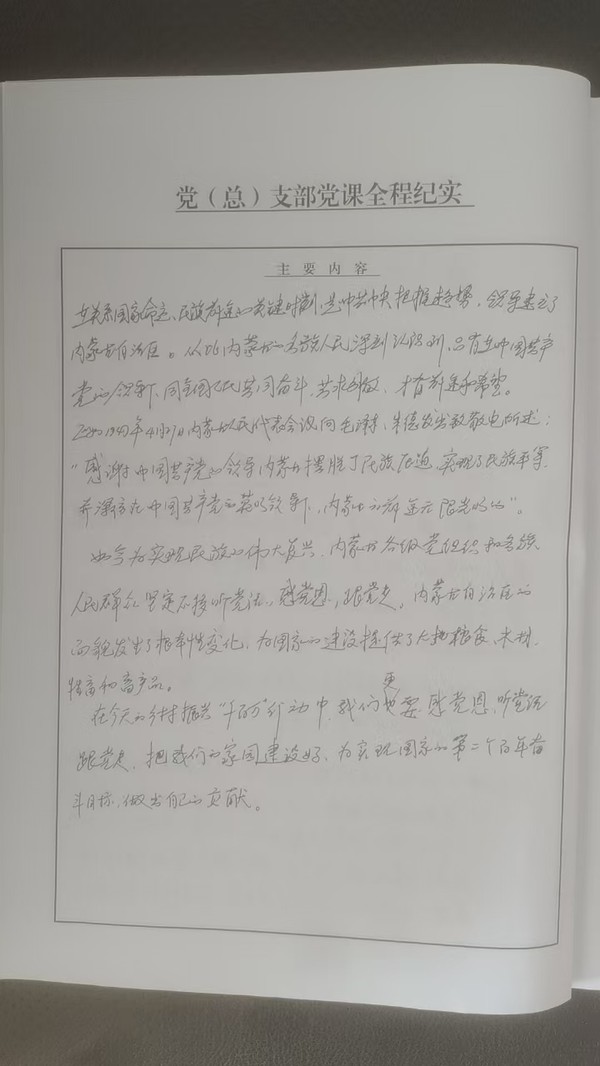 党（总）支部党课全程纪实
主要内容
在关系国家命运、民族前途的关键时刻,是中共中央把握趋势,领导建立了
内蒙古自治区。从此内蒙古的各族人民深刻认识到,只有在中国共产
党的领导下,同全国人民共同奋斗,共求解放,才有前途和希望。
1947年4月27日内蒙古人民代表会议向毛泽东、朱德发出致敬电所述:
“感谢中国共产党的领导内蒙古摆脱了民族压迫,实现了民族平等
并深信在中国共产党的英明领导下,内蒙古的前途无限光明的”。
如今为实现民族的伟大复兴,内蒙古各级党组织和各族
人民群众坚定不移听党话,感党恩,跟党走,内蒙古自治区的
面貌发生了根本性变化,为国家的建设提供了大批粮食、木材、
牲畜和畜产品。
在今天的乡村振兴“千百万”行动中,我们更要感党恩、听党话
跟党走,把我们的家园建设好,为实现国家的第二个百年奋
斗目标,做出自己的贡献。